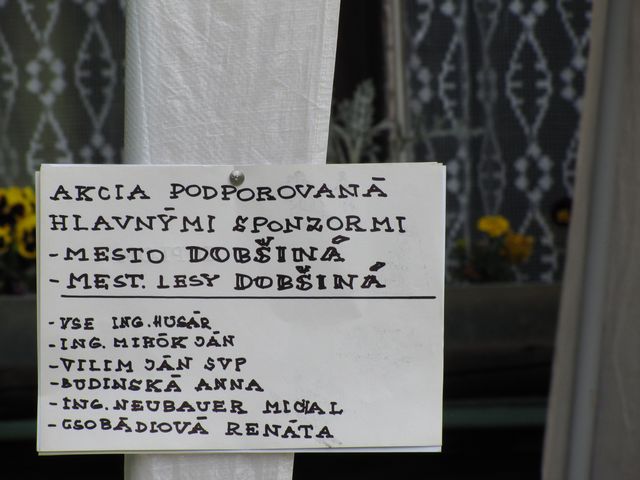 AKCIA PODPOROVANÁ
HLAVNÝMI SPONZORMI
- MESTO DOBŠINÁ
- MEST. LESY DOBŠINÁ
- VSE ING. HUSÁR
- ING. MIHÓK JÁN
- VILIM JÁN SVP
- BUDINSKÁ ANNA
- ING. NEUBAUER MICHAL
- CSOBÁDIOVÁ RENÁTA